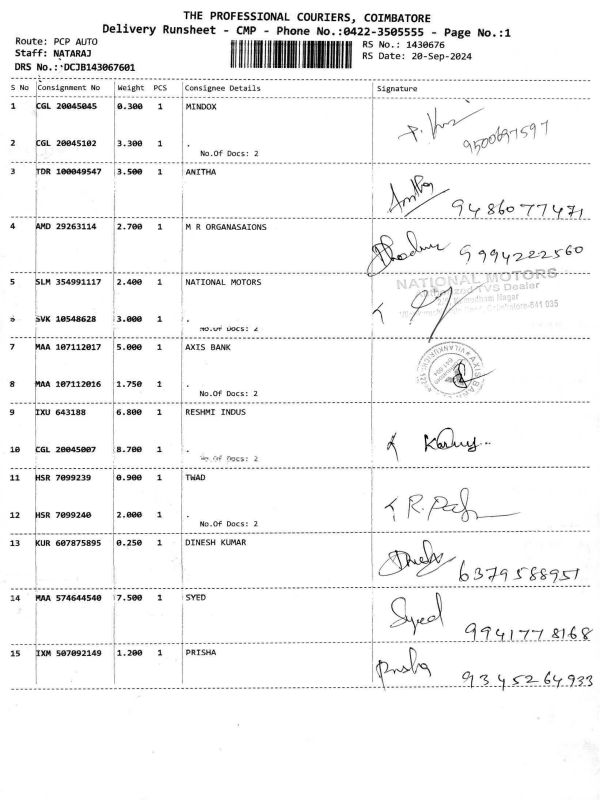 THE PROFESSIONAL COURIERS, COIMBATORE
Delivery Runsheet - CMP - Phone No.:0422-3505555 - Page No.:1
Route: PCP AUTO
Staff: NATARAJ
DRS No.: DCJB143067601
RS No.: 1430676
RS Date: 20-Sep-2024
S No Consignment No Weight PCS Consignee Details Signature
1 CGL 20045045 0.300 1 MINDOX
9500697597
2 CGL 20045102 3.300 1 .
No.Of Docs: 2
3 TDR 100049547 3.500 1 ANITHA
9486077471
4 AMD 29263114 2.700 1 M R ORGANASAIONS
9994222560
5 SLM 354991117 2.400 1 NATIONAL MOTORS
NATIONAL MOTORS
TVS Dealer
Nagar
641 035
6 SVK 10548628 3.000 1 .
No.Of Docs: 2
7 MAA 107112017 5.000 1 AXIS BANK
8 MAA 107112016 1.750 1 .
No.Of Docs: 2
9 IXU 643188 6.800 1 RESHMI INDUS
10 CGL 20045007 8.700 1 .
No.Of Docs: 2
11 HSR 7099239 0.900 1 TWAD
12 HSR 7099240 2.000 1 .
No.Of Docs: 2
13 KUR 607875895 0.250 1 DINESH KUMAR
6379588951
14 MAA 574644540 7.500 1 SYED
Syed
9941778168
15 IXM 507092149 1.200 1 PRISHA
Prisha
9345264933